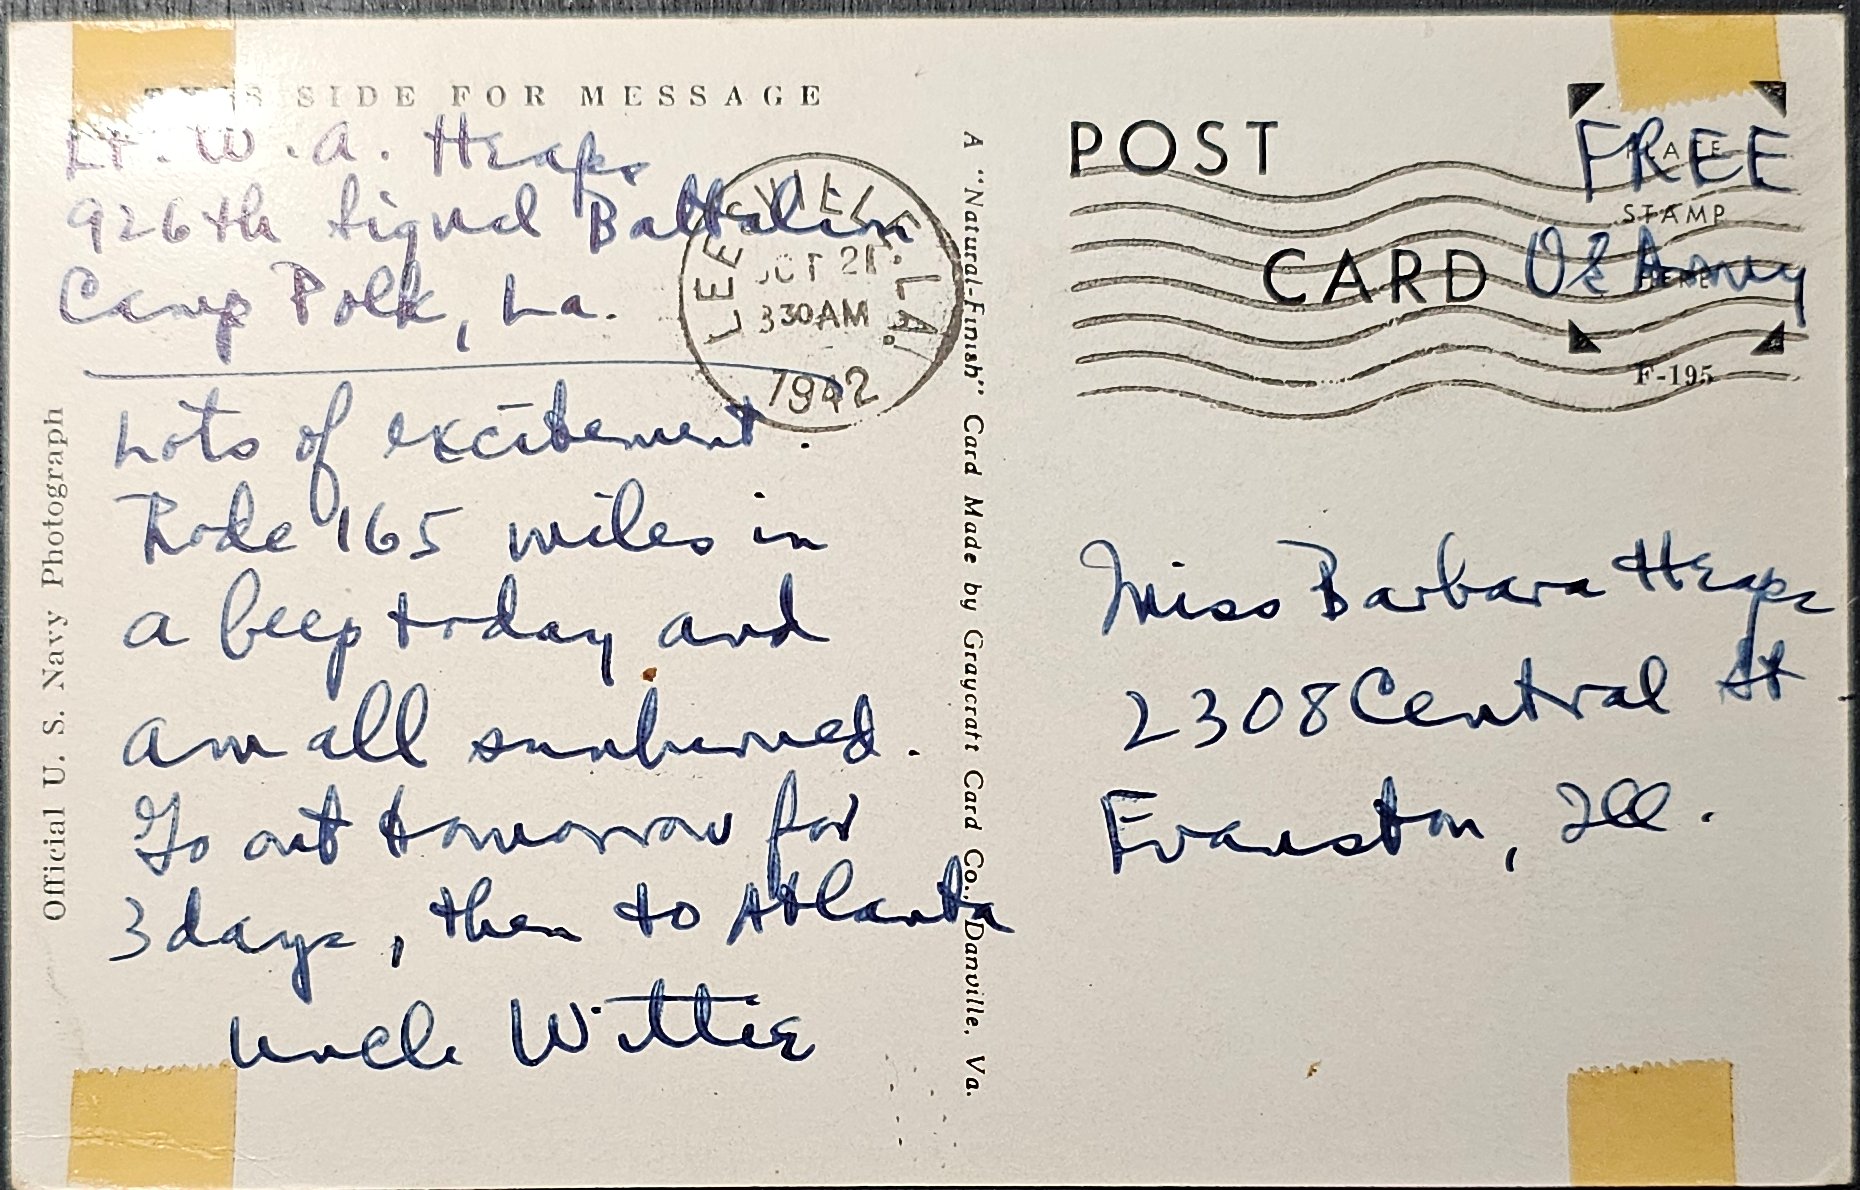 THIS SIDE FOR MESSAGE
Lt. W. A. Heaps
926th Signal Battalion
Camp Polk, La.
Lots of excitement.
Rode 165 miles in
a beep today and
am all sunburned.
Go out tomorrow for
3 days, then to Atlanta
Uncle Wittie
Official U. S. Navy Photograph
LEESVILLE, LA.
OCT 21
330 AM
1942
A "Natural-Finish" Card Made by Graycraft Card Co., Danville, Va.
POST CARD
FREE
US Army
PLACE
STAMP
HERE
F-195
Miss Barbara Heaps
2308 Central St
Evanston, Ill.